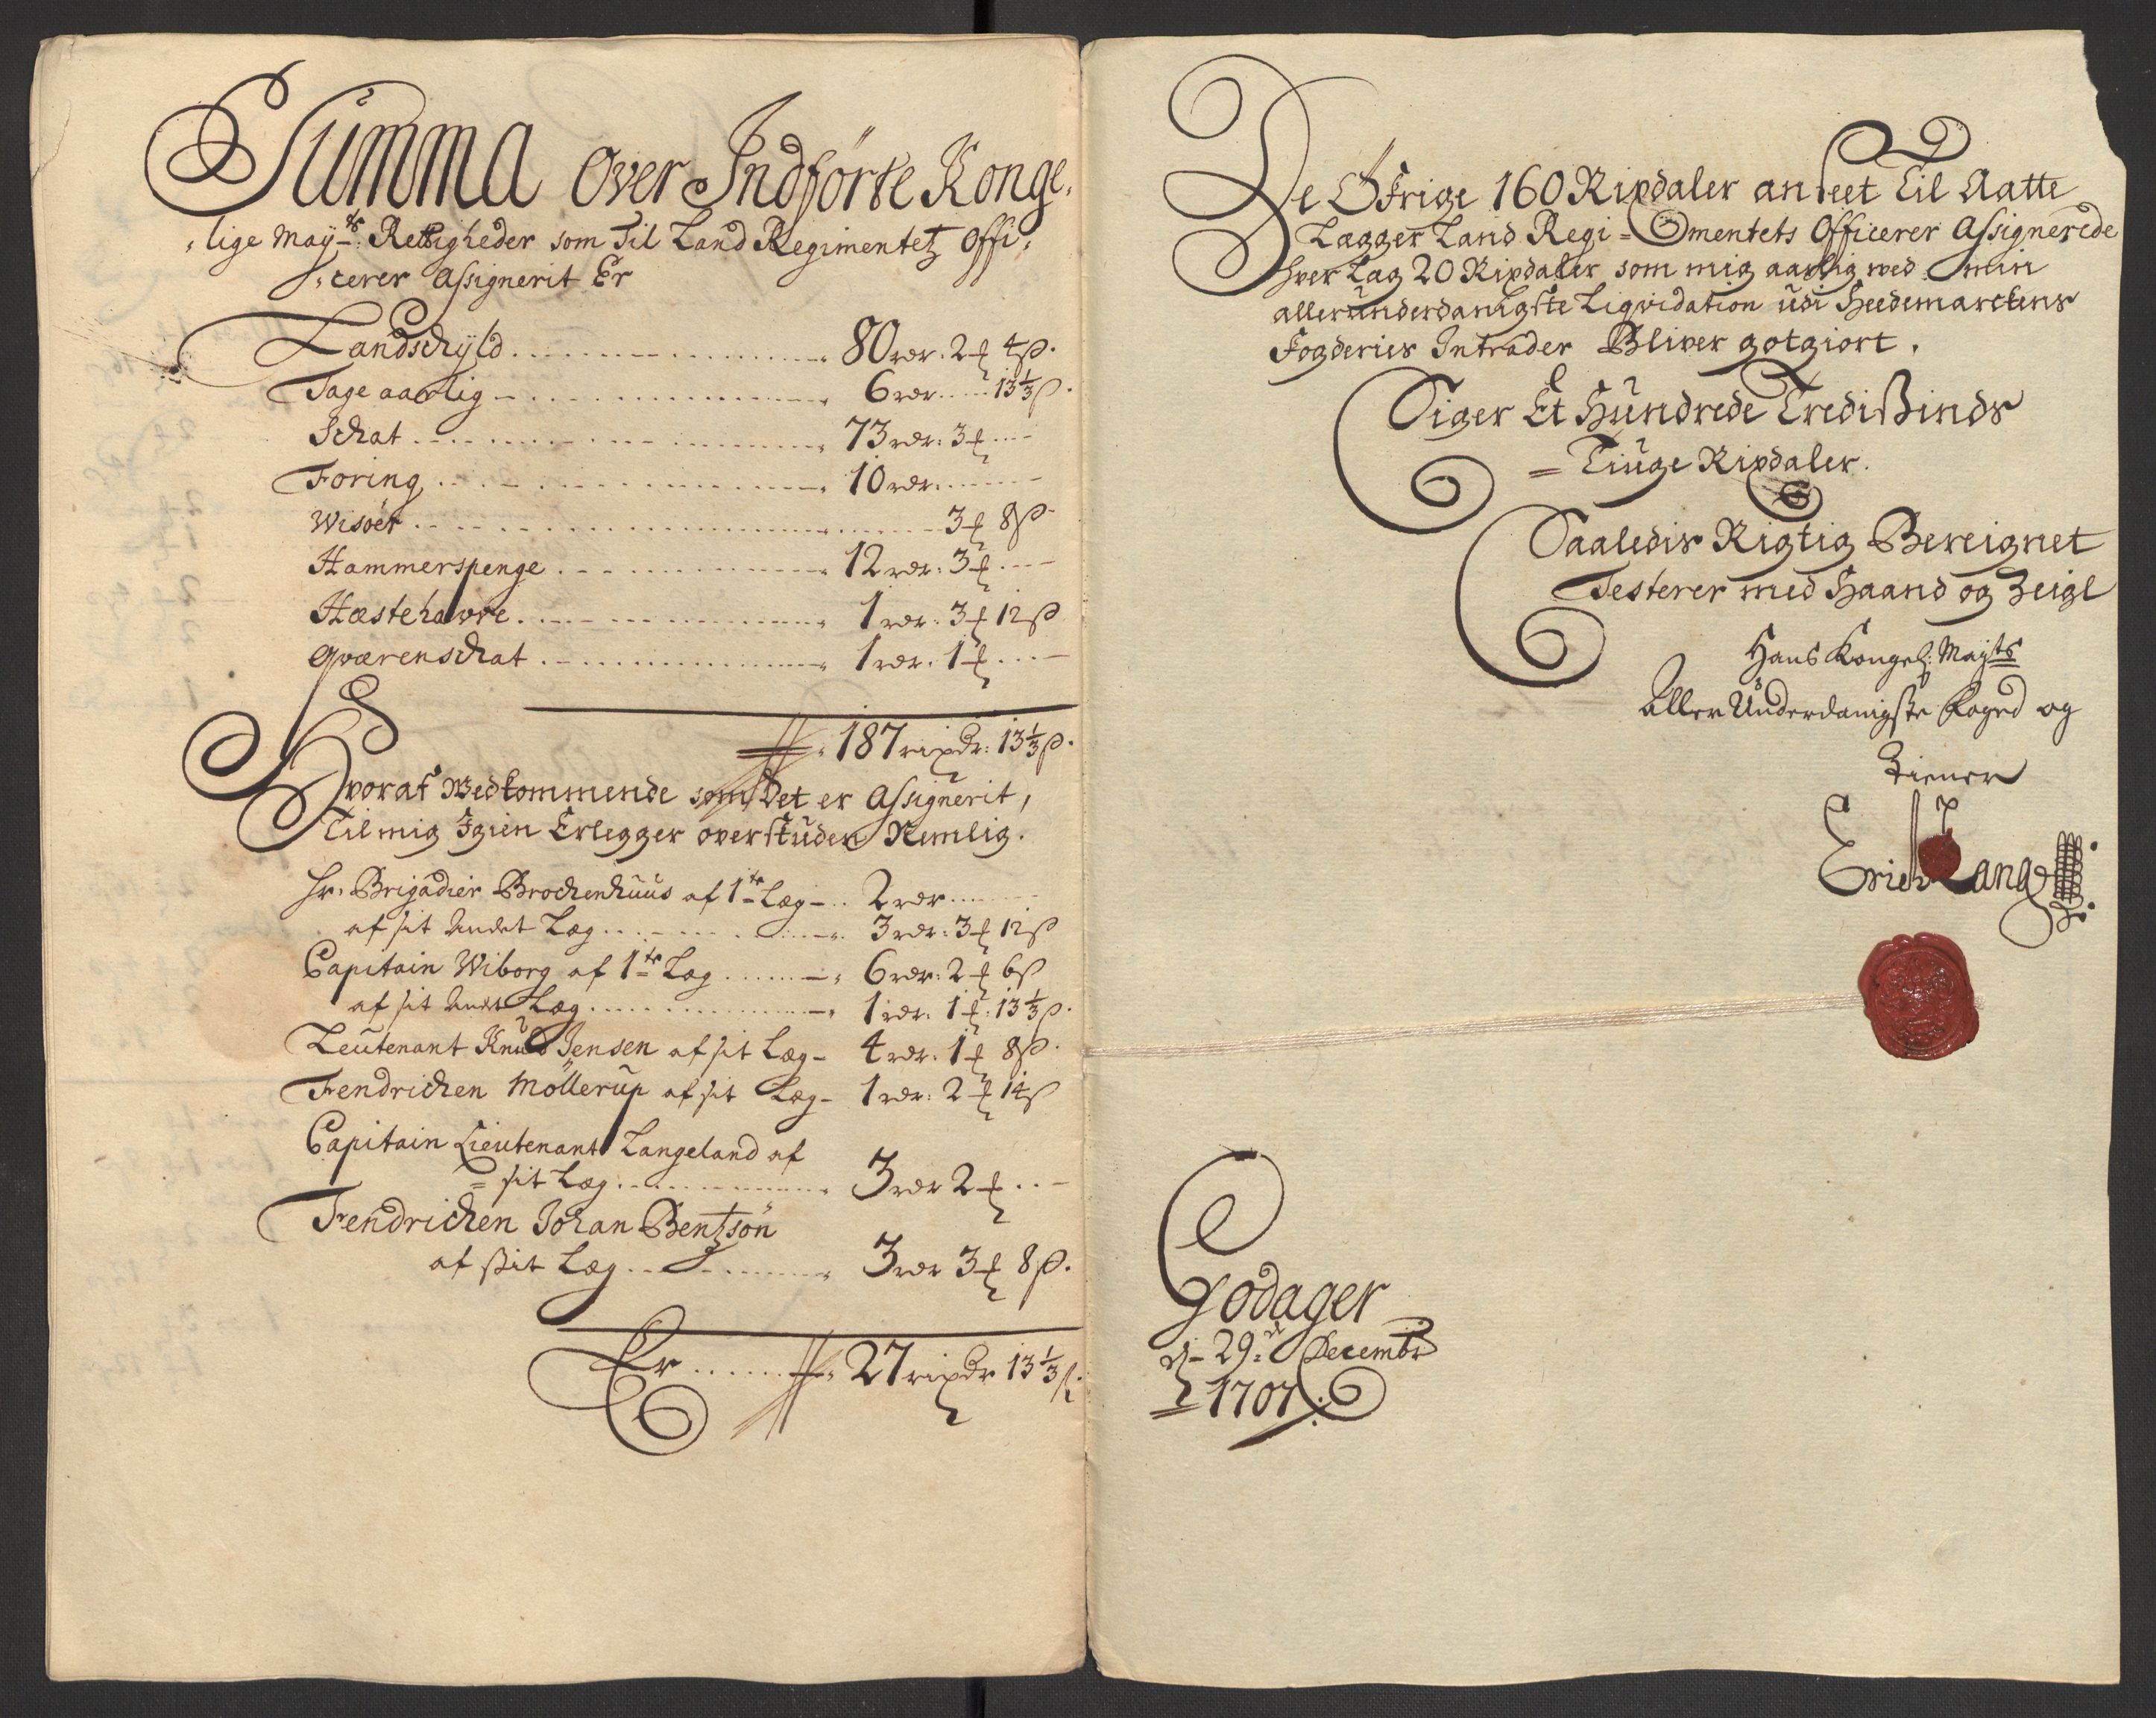 Summa over Indførte Konge,
,lige Maÿ.ts Rettigheder som Til Land Regimentetz offi,
,cerer Assignerit Er
Landschÿld 80 rdr. 2 ₰ 4 β.
Tage aarlig 6 rdr. 13⅓ β.
Schat 73 rdr. 3 ₰
Foring 10 rdr.
Wisøer 3 ₰ 8 β
Hammerspenge 12 rdr. 3 ₰
Hæstehavre 1 rdr. 3 ₰ 12 β
Qværenschat 1 rdr. 1 ₰
187 rixdr. 13⅓ β.
Hvoraf Wedkommende som Det er Assignerit,
Til mig Igien Erlegger overskuden Nemlig.
Hr. Brigadier Brochenhuus af 1te Læg 2 rdr
af sit Andet Læg 3 rdr. 3 ₰ 12 β
Capitain Wiborg af 1te Læg 6 rdr. 2 ₰ 6 β
af sit Andet Læg 1 rdr. 1 ₰. 13⅓ β.
Leutenant Knud Jensen af sit Læg 4 rdr. 1 ₰ 8 β.
Fendrichen Møllerup af sit Læg 1 rdr. 2 ₰ 14 β
Capitain Lieutenant Langeland af
= sit Læg 3 rdr 2 ₰
Fendrichen Johan Bentzøn
af sit Læg 3 rdr 3 ₰ 8 β.
Er 27 rixdr 13⅓ β.
De Øfrige 160 Rixdaler anseet Til Aatte
Lægger Land Regi=mentets Officerer Assignerede
hver Læg 20 Rixdaler som mig aarlig wed min
allerunderdanigste Liqvidation udi Heedemarckens
Fogderies Intrader Bliver gotgiort.
Siger Et Hundrede Tredisinds
= Tiuge Rixdaler.
Saaledis Rigtig Bereignet
Testerer med Haand og Zeigl
Hans Kongel: Maÿts
Aller Underdanigste Foged og
Tiener
Erich Lang
Godager
d. 29. Decembr
1707.